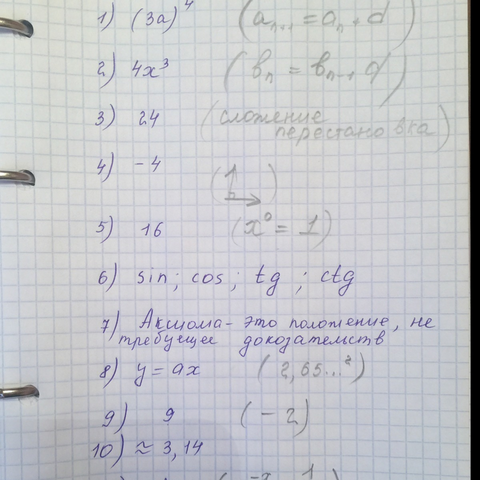 1) (3a)⁴ (aₙ₊₁ = aₙ + d)
2) 4x³ (bₙ = bₙ₋₁ q)
3) 24 (сложение
перестановка)
4) -4
5) 16 (x⁰ = 1)
6) sin; cos; tg; ctg
7) Аксиома - это положение, не
требущее докозательств
8) y = ax (2,65...²)
9) 9 (-2)
10) ≈ 3,14